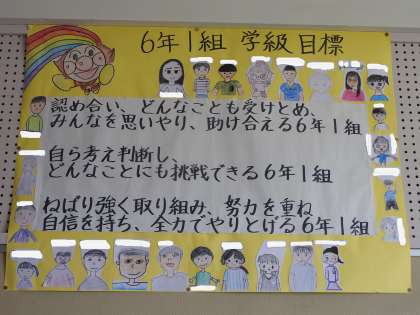 6年1組 学級目標
認め合い、どんなことも受けとめ、
みんなを思いやり、助け合える6年1組
自ら考え判断し、
どんなことにも挑戦できる6年1組
ねばり強く取り組み、努力を重ね
自信を持ち、全力でやりとげる6年1組